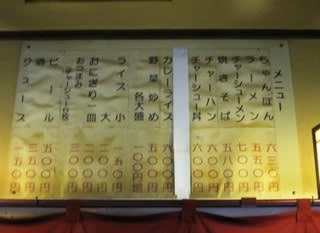 メニュー
ちゃんぽん 六三〇円
ラーメン 五〇〇円
チャーシューメン
焼きそば 五八〇円
チャーハン 五〇〇円
チャーシュー丼
カレーライス 六〇〇円
野菜炒め 五〇〇円
各大盛 一〇〇円増
ライス 小 一五〇円
大 二〇〇円
おにぎり一皿
おつまみ
(チャーシュー1枚)
酒
ビール 五〇〇円
ジュース 一五〇円